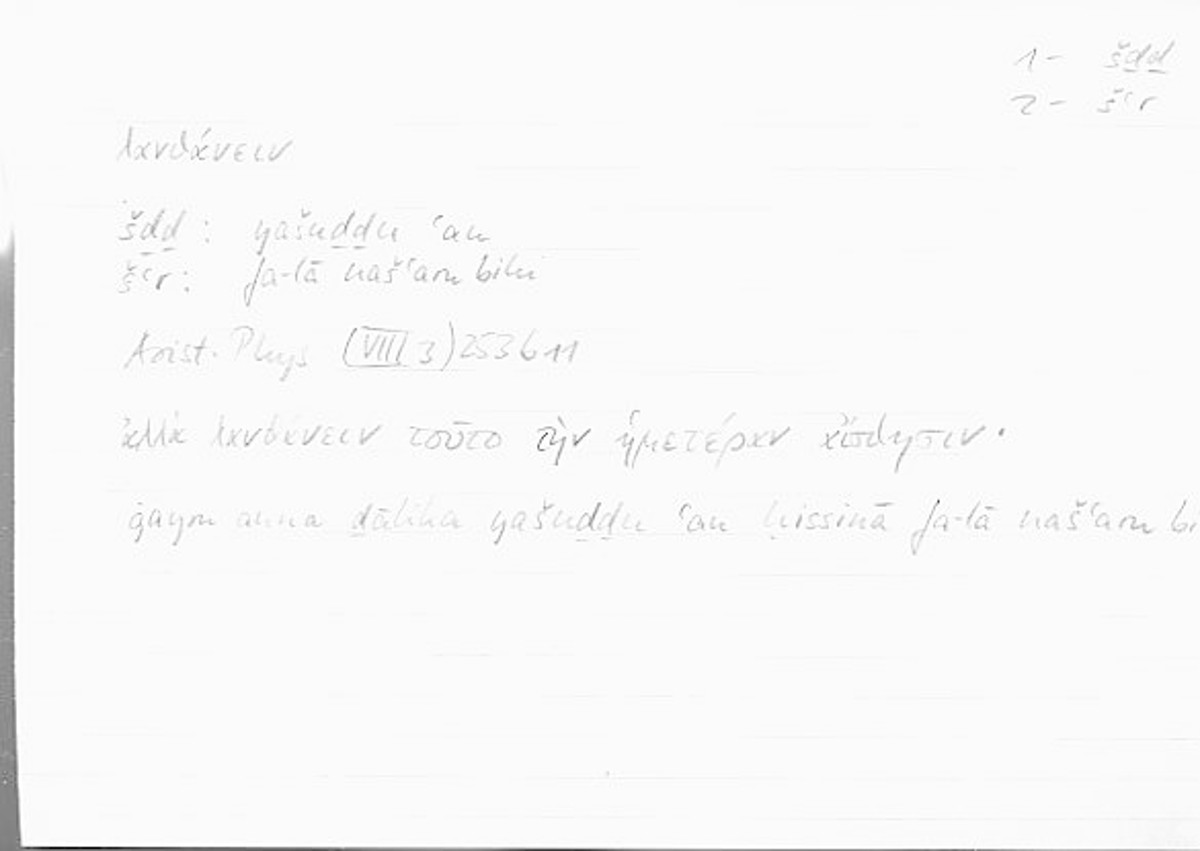 1 - šḏḏ
2 - šʿr
λανθάνειν
šḏḏ : yašuḏḏu ʿan
šʿr : fa-lā našʿaru bihi
Arist. Phys (VIII 3) 253 b 11
ἀλλὰ λανθάνειν τοῦτο τὴν ἡμετέραν αἴσθησιν·
ġayra anna ḏālika yašuḏḏu ʿan ḥissinā fa-lā našʿaru